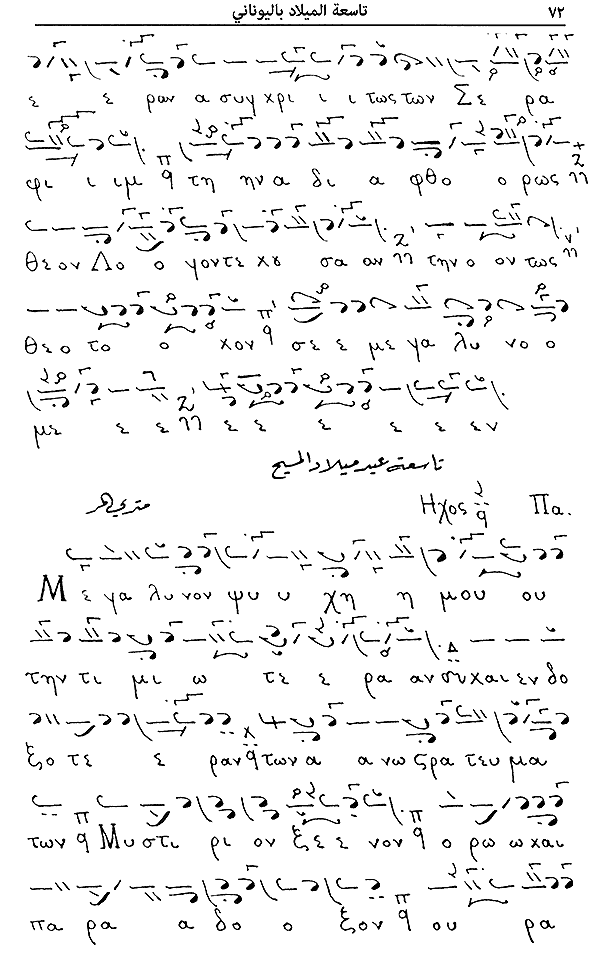 ٧٢ تاسعة الميلاد باليوناني
ε ε ραν α συγ χρι ι ι τως των Σε ρα
φι ι ιμ τη ην α δι α φθο ο ρως
θε ον Λο ο γον τε χου σα αν την ο ον τως
θε ο το ο κον σε ε με γα λυ νο ο
με ε ε ε ε ε ε ε εν
تاسعة عيد ميلاد المسيح
Ηχος Πα.
Με γα λυ νον ψυ υ χη η μου ου
την τι μι ω τε ε ρα αν συ χαι εν δο
ξο τε ε ραν των α α νω ςρα τευ μα
των Μυ στι ρι ον ξε ε νον ο ρω ω χαι
πα ρα α δο ο ξον ου ρα